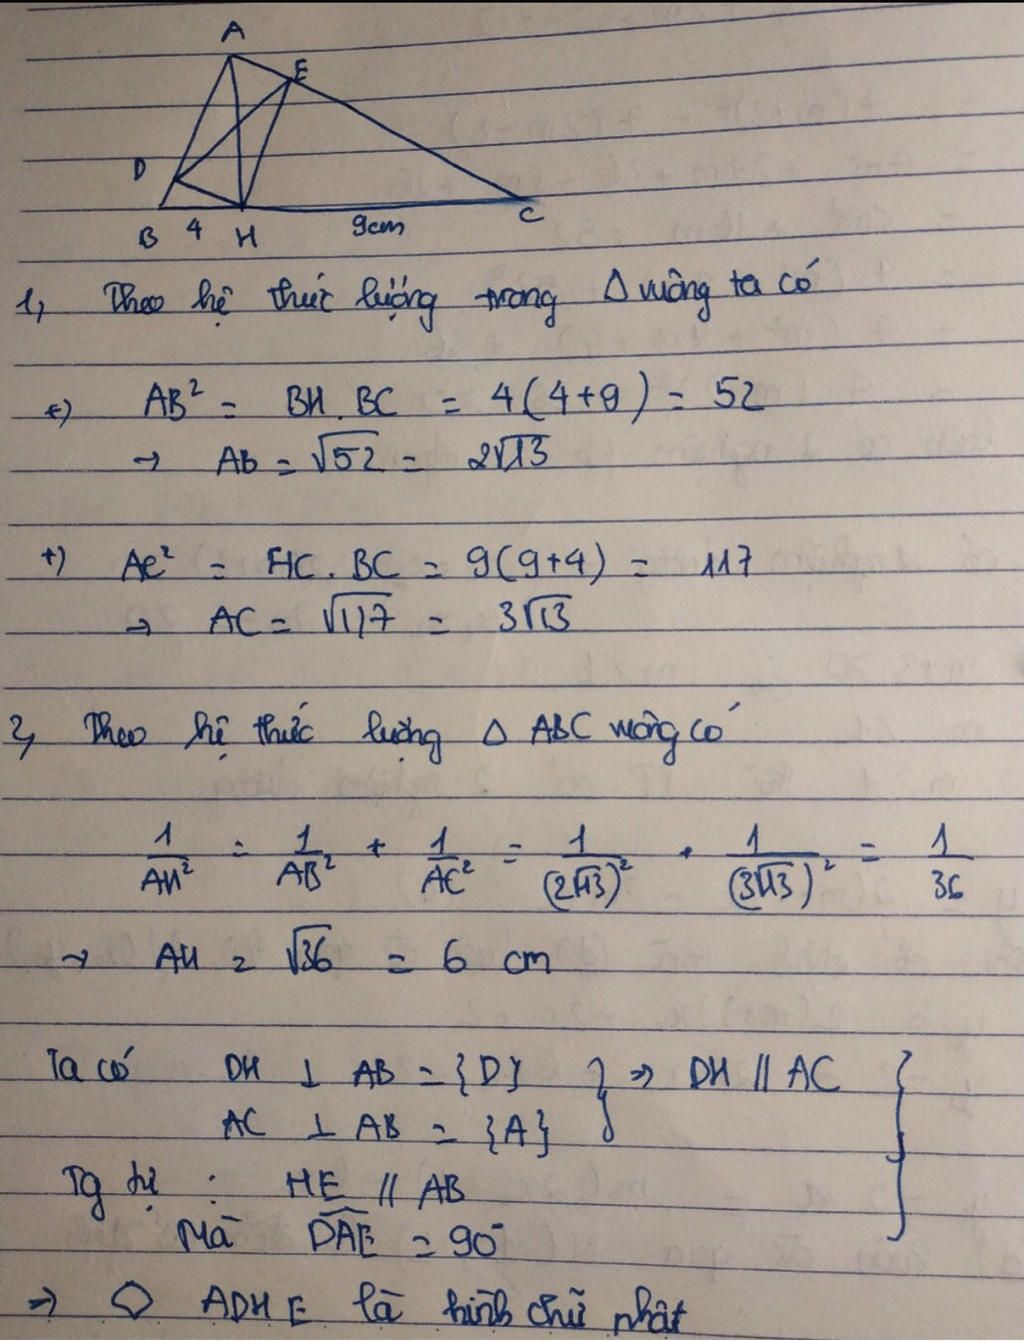 A
E
D
B 4 H 9cm C
1, Theo hệ thức lượng trong Δ vuông ta có
+) AB² = BH . BC = 4(4+9) = 52
→ AB = √52 = 2√13
+) AC² = HC . BC = 9(9+4) = 117
→ AC = √117 = 3√13
2, Theo hệ thức lượng Δ ABC vuông có
1/AH² = 1/AB² + 1/AC² = 1/(2√13)² + 1/(3√13)² = 1/36
→ AH = √36 = 6 cm
Ta có DH ⊥ AB = {D} } ⇒ DH // AC }
AC ⊥ AB = {A}
Tg tự : HE // AB
Mà DAE = 90°
⇒ ◇ ADHE là hình chữ nhật